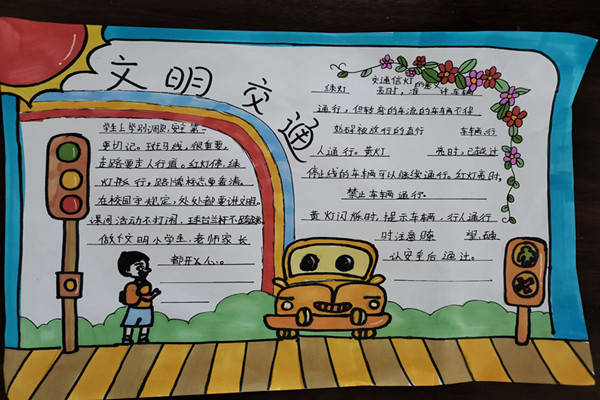 文明交通
学生上学别调皮,安全第一
更切记。斑马线,很重要,
走路要走人行道。红灯停,绿
灯行,路牌标志要看清。
在校园守规定,处处都要讲文明。
课间活动不打闹,阳台兰杆不跨跳
做个文明小学生,老师家长
都开心。
绿灯 交通信灯的意义
亮时,准 许车辆
通行,但转弯的车流的车辆不得
妨碍被放行的直行 车辆,行
人通行。黄灯 亮时,已越过
停止线的车辆可以继续通行。红灯亮时,
禁止车辆通行。
黄灯闪烁时,提示车辆,行人通行
时注意瞭 望,确
认安全后通过。